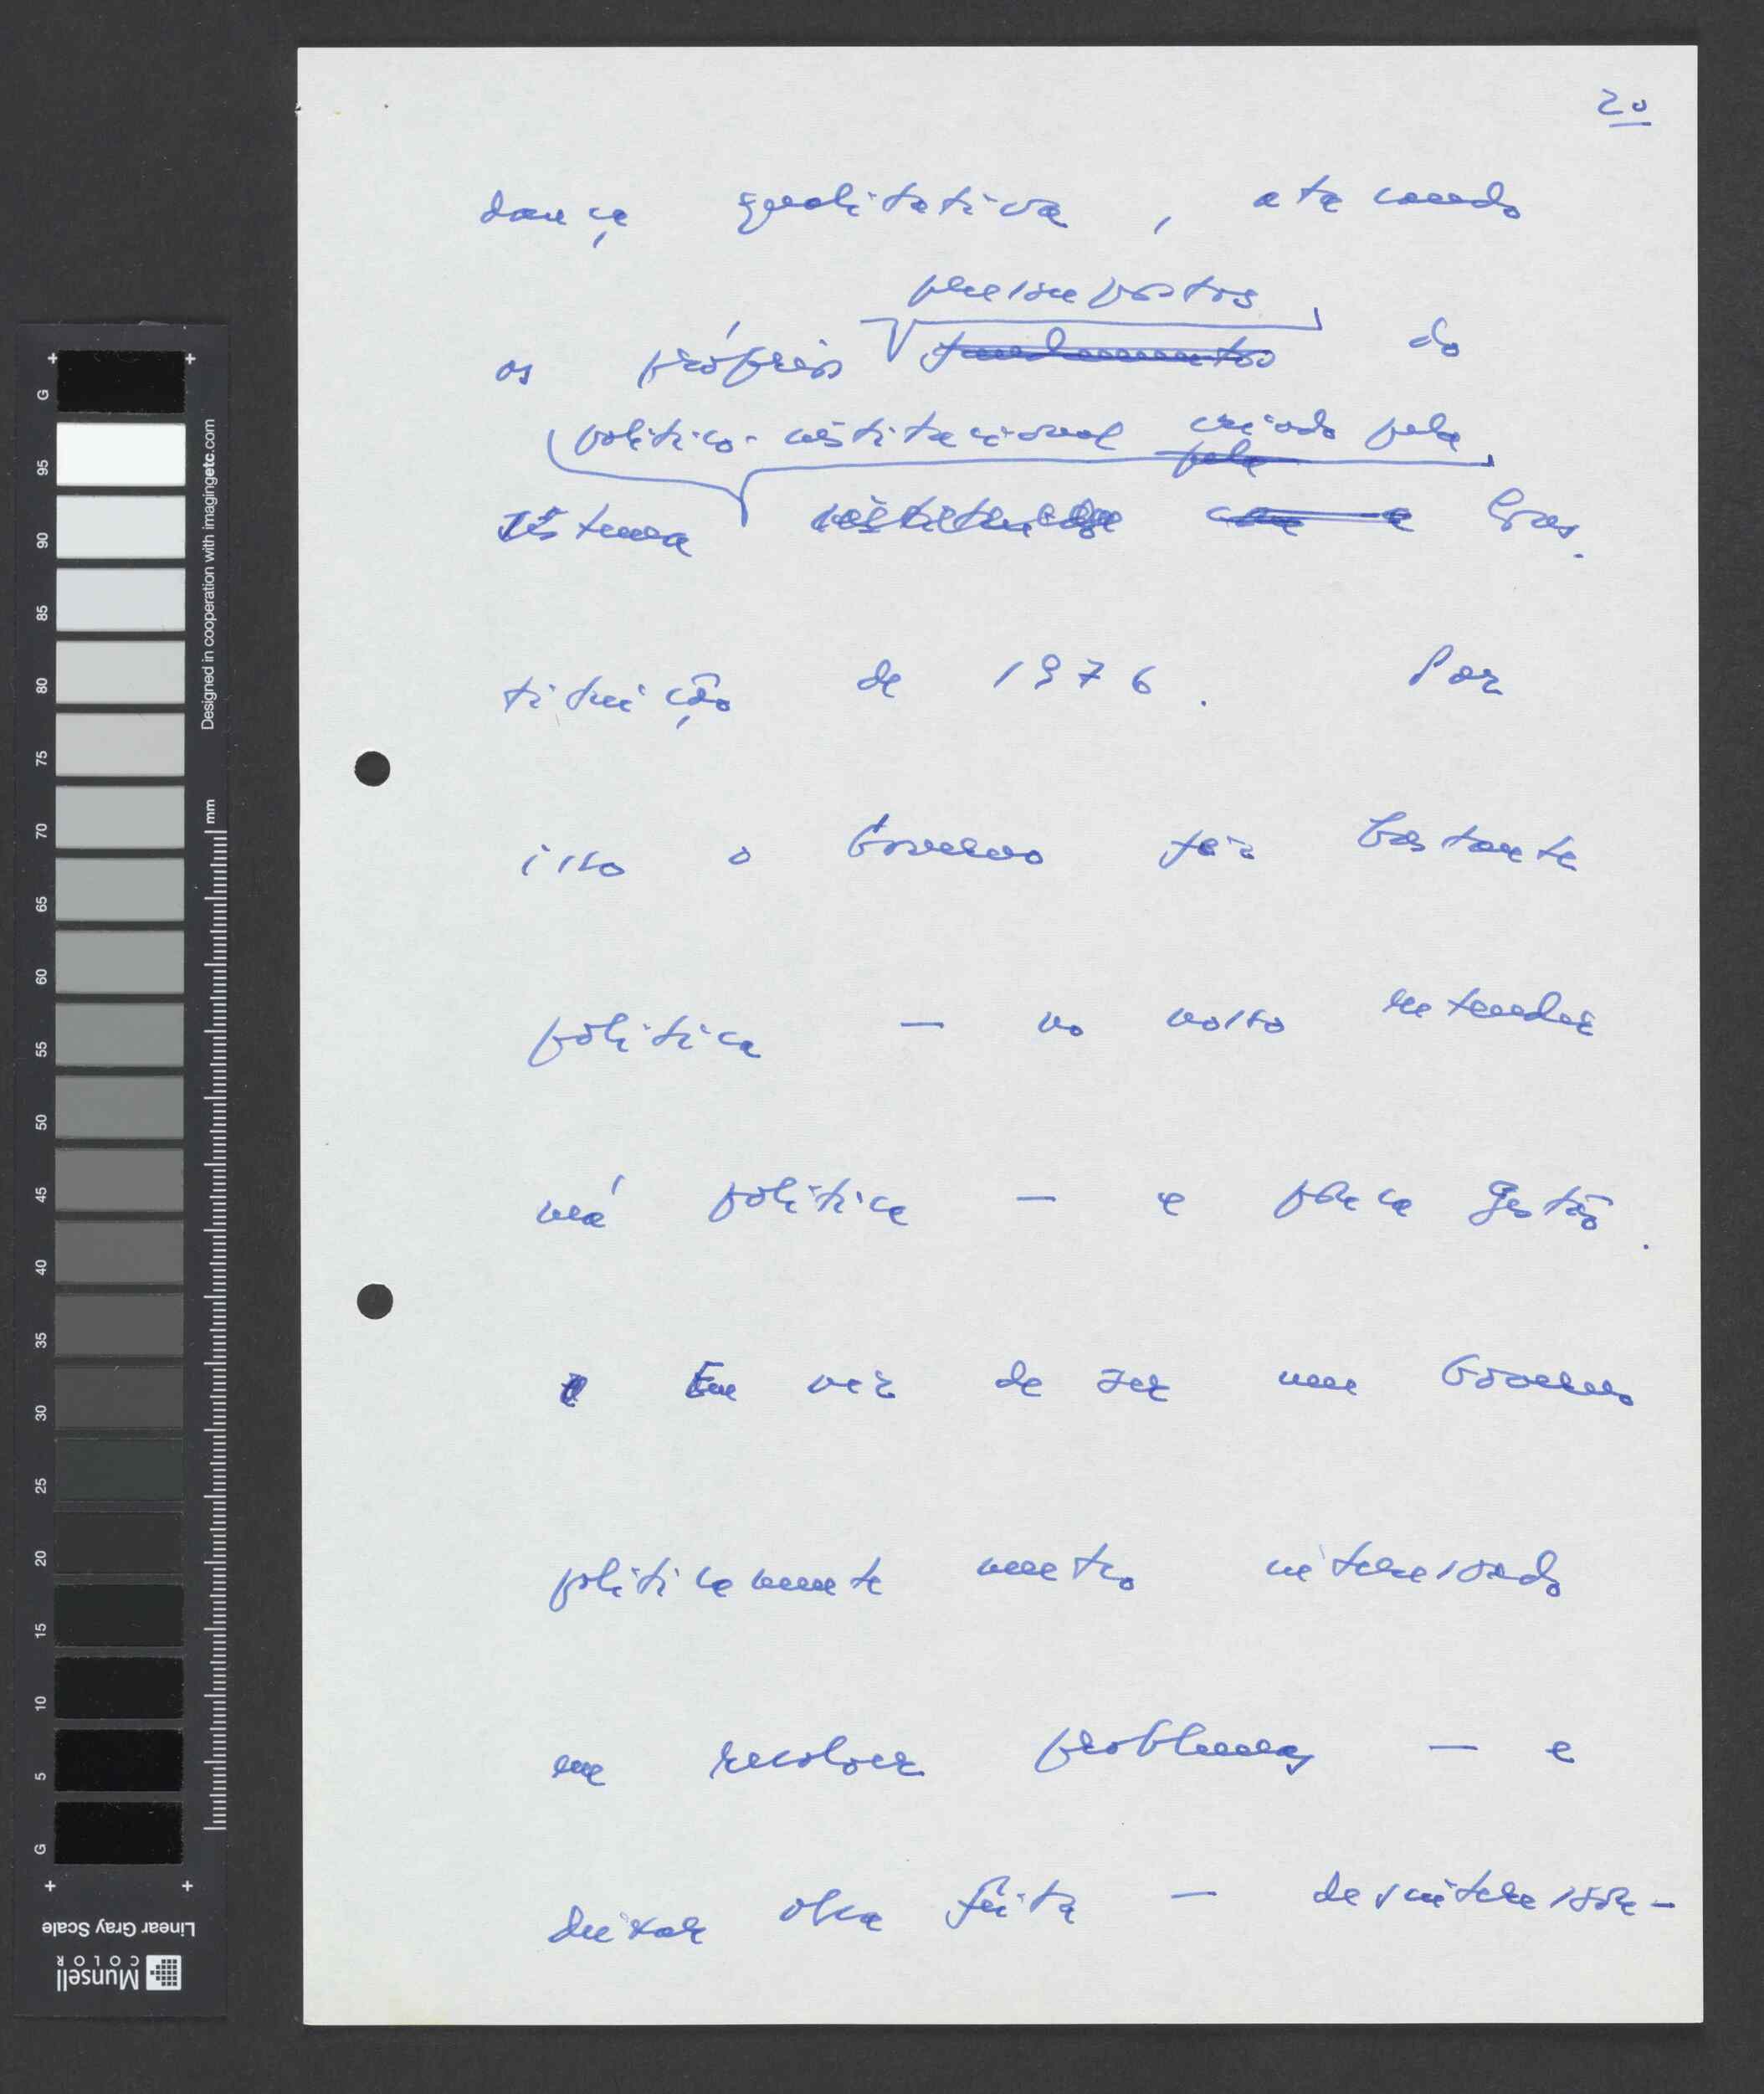 20
dança qualitativa, atacando
pressupostos
os próprios fundamentos do
político-institucional criado pela
pela
sistema institucional com a Cons.
tituição de 1976. Por
isso o Governo fez bastante
política — no nosso entender
má política — e pouca gestão.
e Em vez de ser um Governo
politicamente muito interessado
em resolver problemas — e
deixar obra feita — desinteressou-
G
95
90
85
80
75
70
65
60
55
50
45
40
35
30
25
20
15
10
5
G
Designed in cooperation with imagingetc.com
mm
Linear Gray Scale
Munsell
COLOR